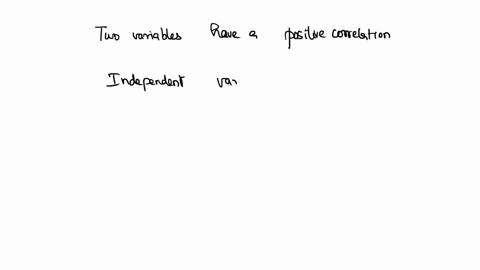 Two variables have a positive correlation
Independent var